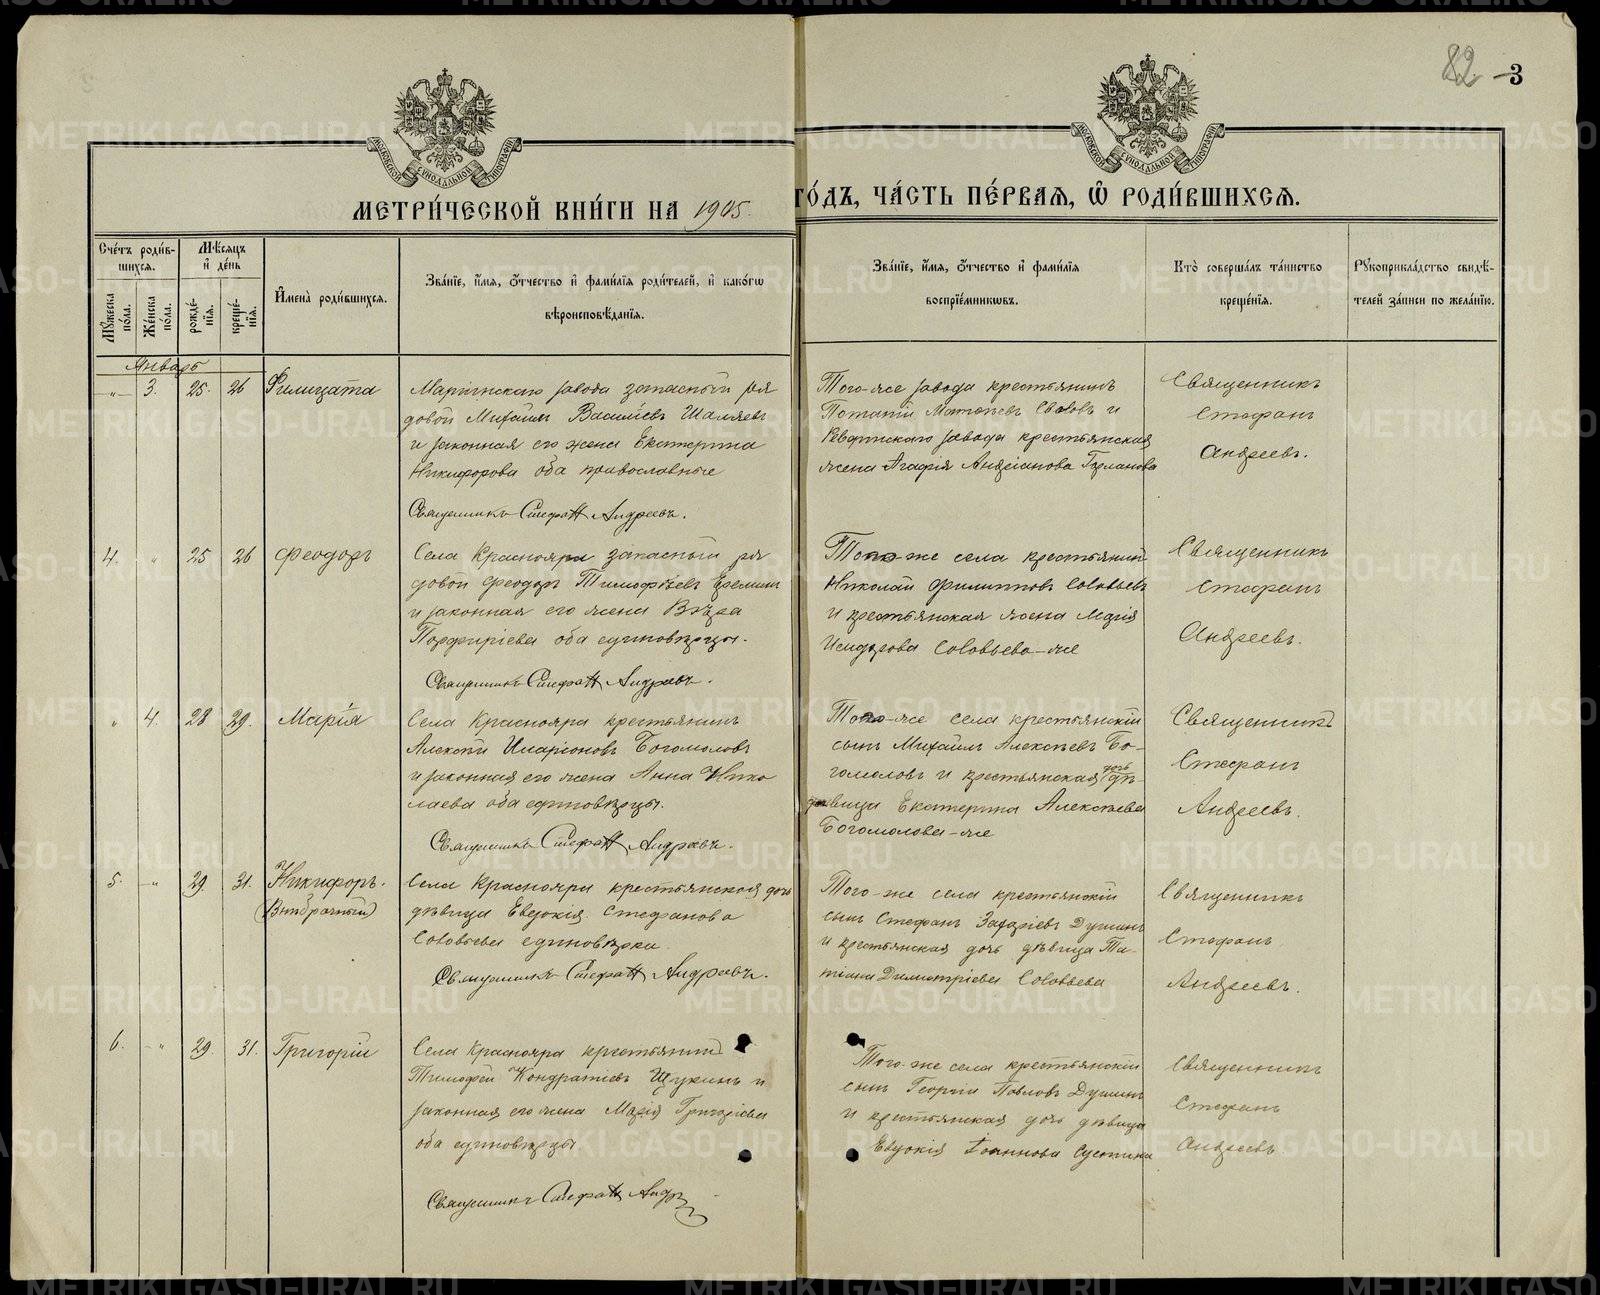 82 3
МОСКОВСКОЙ СѴНОДАЛЬНОЙ ТИПОГРАФІИ
МОСКОВСКОЙ СѴНОДАЛЬНОЙ ТИПОГРАФІИ
МЕТРИ́ЧЕСКОЙ КНИ́ГИ НА 1905 ГО́ДЪ, ЧА́СТЬ ПЕ́РВАЯ, Ѽ РОДИ́ВШИХСЯ.
Сче́тъ роди́в-
шихся.
Му́жеска по́ла.
Же́нска по́ла.
Мѣ́сяцъ
и҆ де́нь
рожде́-
нїя.
креще́-
нїя.
И҆мена̀ роди́вшихся.
Зва́нїе, и҆́мя, ѻ҆́тчество и҆ фами́лїя роди́телей, и҆ како́гѡ
вѣроисповѣ́данїя.
Зва́нїе, и҆́мя, ѻ҆́тчество и҆ фами́лїя
воспрїе́мникωвъ.
Кто̀ соверша́лъ та́инство
креще́нїя.
Рꙋкоприкла́дство свидѣ́-
телей за́писи по жела́нїю.
Январь
-"- 3. 25. 26 Филицата
Маріинскаго завода запасный ря
довой Михаилъ Васильевъ Шаляевъ
и законная его жена Екатерина
Никифорова оба православные
Священникъ Стефанъ Андреевъ.
Того-же завода крестьянинъ
Потапій Матѳеевъ и
Ревдинскаго завода крестьянская
жена Агафія Андріанова
Священникъ
Стефанъ
Андреевъ.
4. " 25 26 Феодоръ
Села Краснояра запасный ря
довой Феодоръ Тимофѣевъ Еремин
и законная его жена Вѣра
Порфиріева оба единовѣрцы.
Священникъ Стефанъ Андреевъ.
Того-же села крестьянин
Николай Филипповъ Соловьевъ
и крестьянская жена Марія
Исидорова Соловьева-же
Священникъ
Стефанъ
Андреевъ.
" 4. 28 29. Марія
Села Краснояра крестьянинъ
Алексѣй Иларіоновъ Богомоловъ
и законная его жена Анна Нико
лаева оба единовѣрцы.
Священникъ Стефанъ Андреевъ.
Того-же села крестьянскій
сынъ Михаилъ Алексѣевъ Бо-
гомоловъ и крестьянская дочь дѣ-
вица Екатерина Алексѣева
Богомолова-же
Священникъ
Стефанъ
Андреевъ.
5. -"- 29. 31. Никифоръ.
(Внѣбрачный)
Села Краснояра крестьянская дочь
дѣвица Евдокія Стефанова
Соловьева единовѣрка.
Священникъ Стефанъ Андреевъ.
Того-же села крестьянскій
сынъ Стефанъ Захаріевъ Душинъ
и крестьянская дочь дѣвица Та-
тіана Димитріева Соловьева
Священникъ
Стефанъ
Андреевъ.
6. -"- 29. 31. Григорій
Села Краснояра крестьянинъ
Тимофей Кондратіевъ Щукинъ и
законная его жена Марія Григоріева
оба единовѣрцы
Священникъ Стефанъ Андр
Того-же села крестьянскій
сынъ Георгій Павловъ Душинъ
и крестьянская дочь дѣвица
Евдокія Іоаннова
Священникъ
Стефанъ
Андреевъ
METRIKI.GASO-URAL.RU